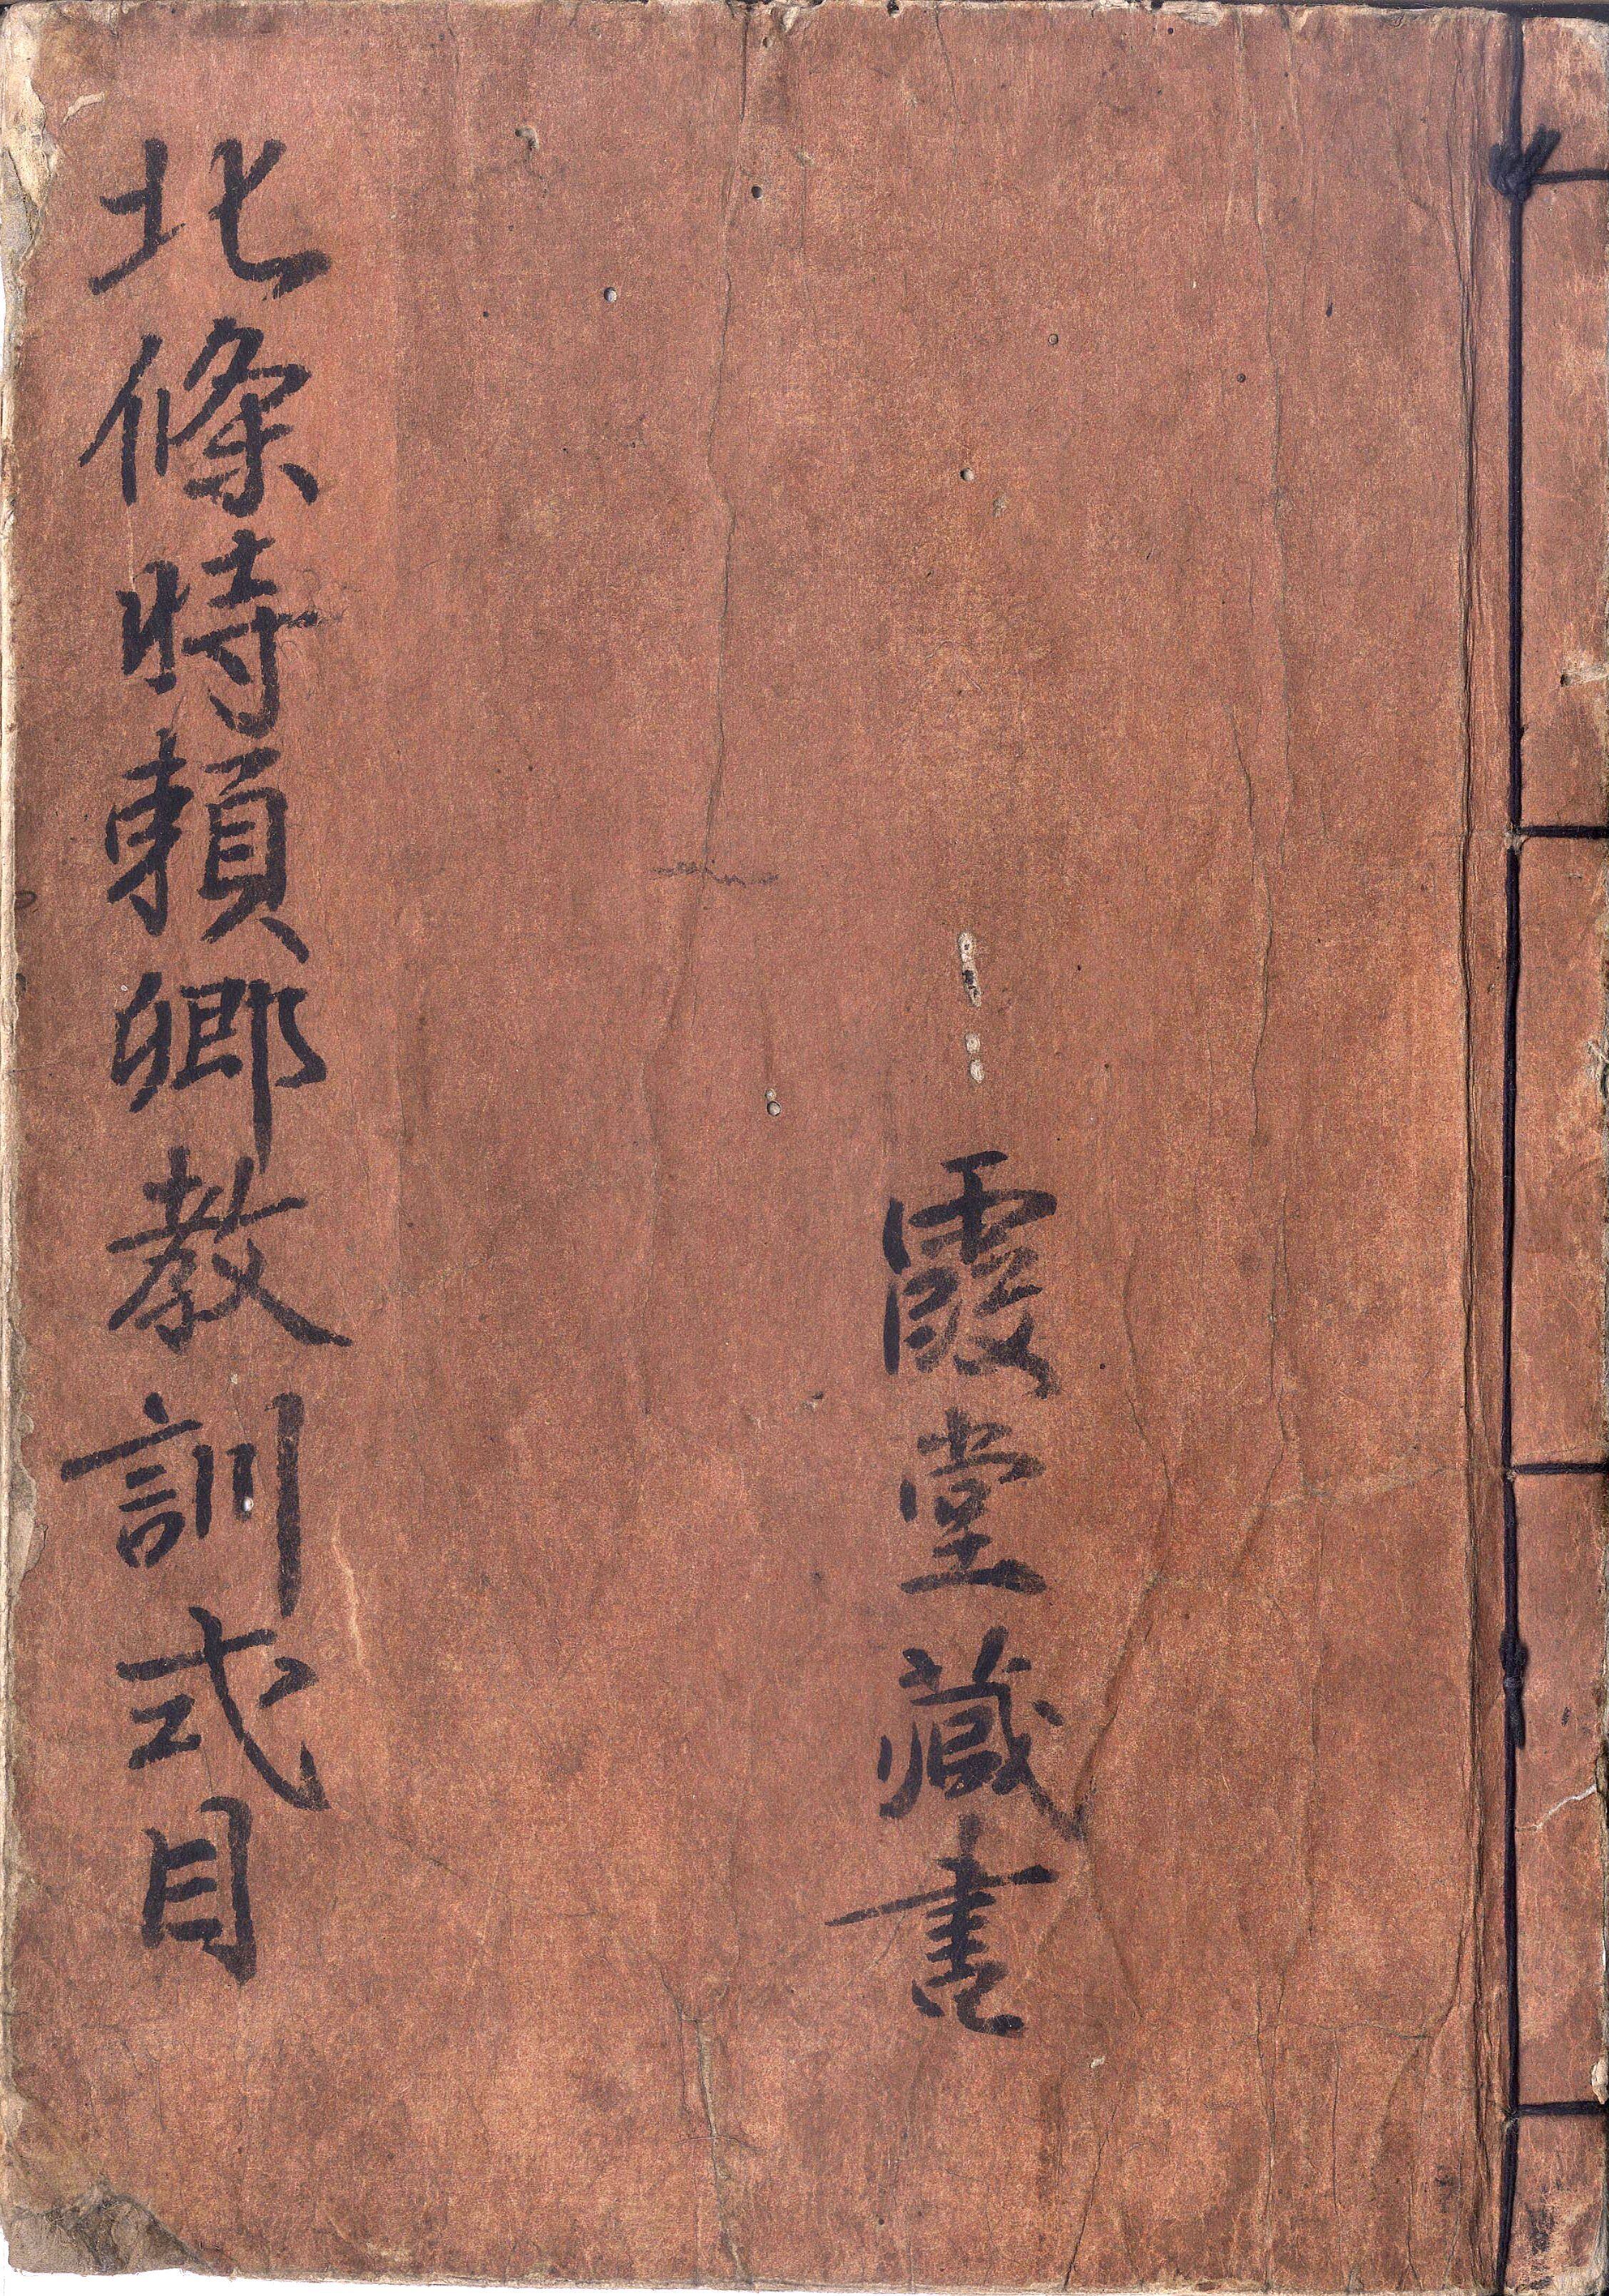 霞堂藏書
北條時頼卿教訓式目